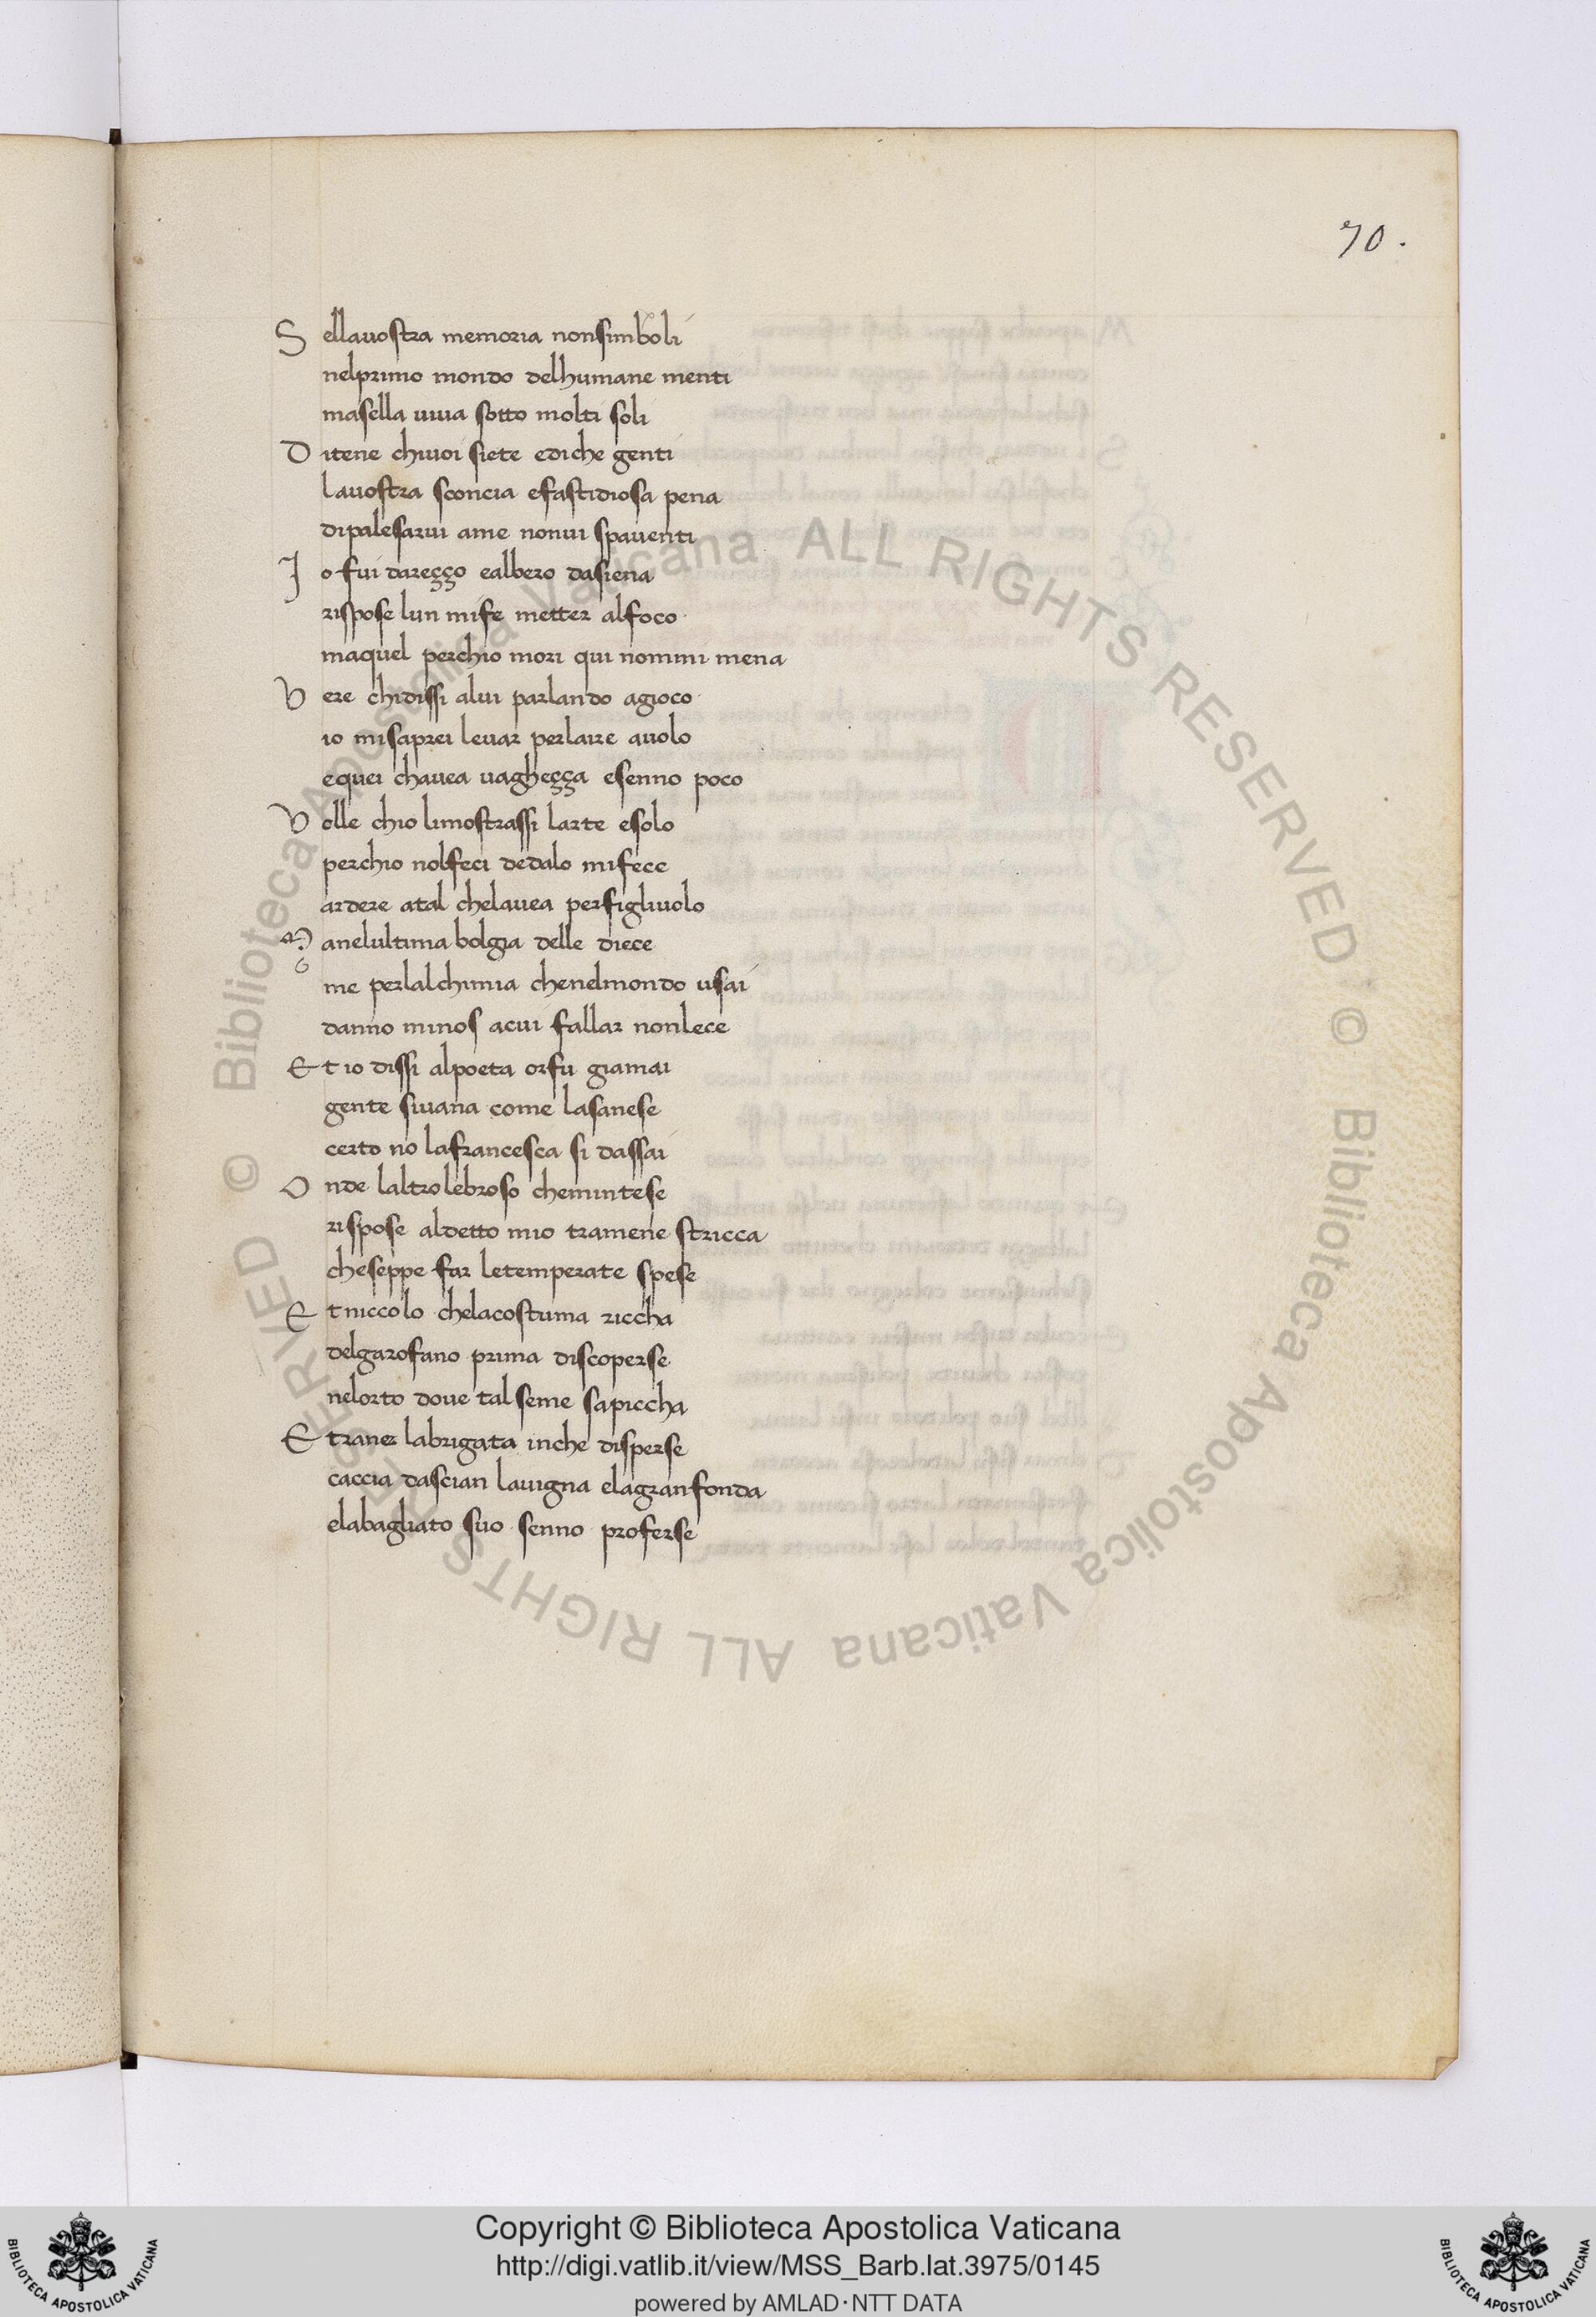 70.
S ellauostra memoria nonsimboli
nelprimo mondo delhumane menti
masella uiua sotto molti soli
D itene chiuoi siete ediche genti
lauostra sconcia efastidiosa pena
dipalesarui ame nonui spauenti
I o fui dareçço ealbero dasiena
rispose lun mife metter alfoco
maquel perchio mori qui nommi mena
V ere chidissi alui parlando agioco
io misaprei leuar perlaire auolo
equei chauea uagheçça esenno poco
V olle chio limostrassi larte esolo
perchio nolfeci dedalo mifece
ardere atal chelauea perfigliuolo
M anelultima bolgia delle diece
me perlalchimia chenelmondo usai
danno minos acui fallar nonlece
E t io dissi alpoeta orfu giamai
gente siuana come lasanese
certo no lafrancesca si dassai
O nde laltro lebroso chemintese
rispose aldetto mio tramene stricca
cheseppe far letemperate spese
E t niccolo chelacostuma riccha
delgarofano prima discoperse
nelorto doue tal seme sapiccha
E traner labrigata inche disperse
caccia dascian lauigna elagranfonda
elabagliato suo senno proferse
© Biblioteca Apostolica Vaticana ALL RIGHTS RESERVED © Biblioteca Apostolica Vaticana ALL RIGHTS RESERVED
BIBLIOTECA APOSTOLICA VATICANA
Copyright © Biblioteca Apostolica Vaticana
http://digi.vatlib.it/view/MSS_Barb.lat.3975/0145
powered by AMLAD·NTT DATA
BIBLIOTECA APOSTOLICA VATICANA